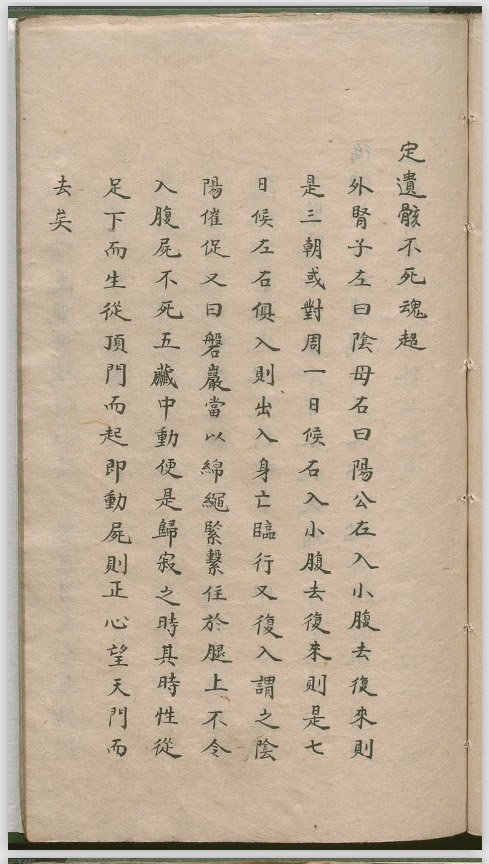 定遺骸不死魂超
外腎子左曰陰母右曰陽公左入小腹去復來則
是三朝或對周一日候右入小腹去復來則是七
日候左右俱入則出入身亡臨行又復入謂之陰
陽催促又曰磐巖當以綿繩緊繫住於腿上不令
入腹屍不死五臟中動便是歸寂之時其時性從
足下而生從頂門而起即動屍則正心望天門而
去矣